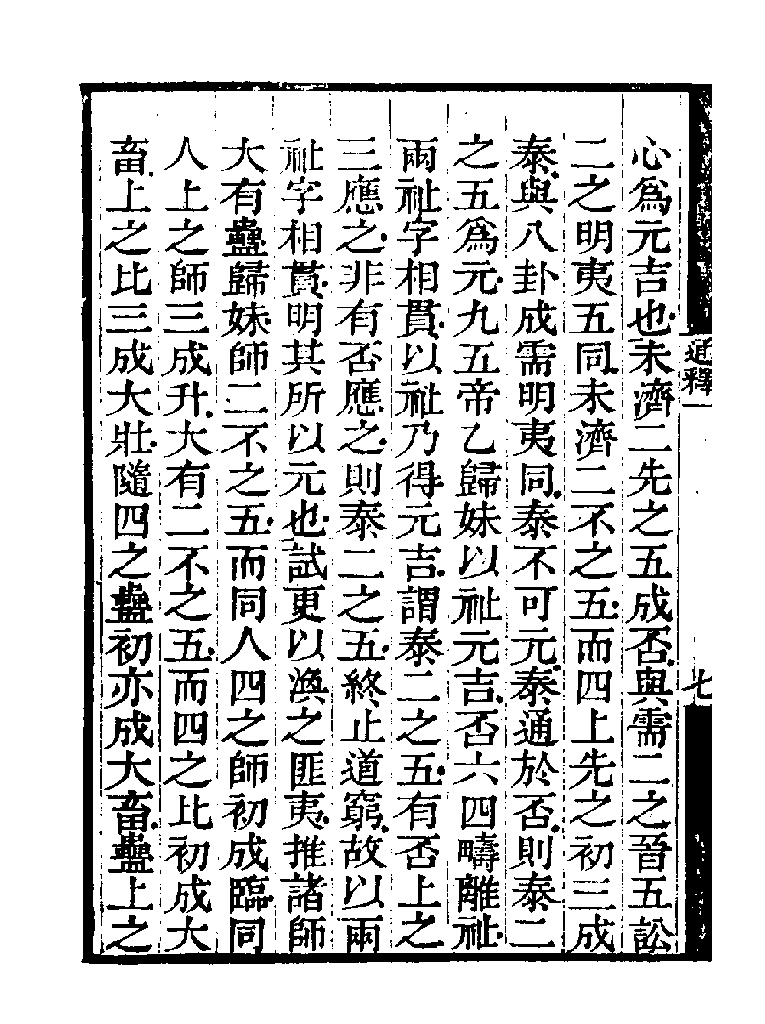 心爲元吉也未濟二先之五成否與需二之晉五訟
二之明夷五同未濟二不之五而四上先之初三成
泰與八卦成需明夷同泰不可元泰通於否則泰二
之五爲元九五帝乙歸妹以祉元吉否六四疇離祉
兩祉字相貫以祉乃得元吉謂泰二之五有否上之
三應之非有否應之則泰二之五終止道窮故以兩
祉字相貫明其所以元也試更以渙之匪夷推諸師
大有蠱歸妹師二不之五而同人四之師初成臨同
人上之師三成升大有二不之五而四之比初成大
畜上之比三成大壯隨四之蠱初亦成大畜蠱上之
通釋一
七